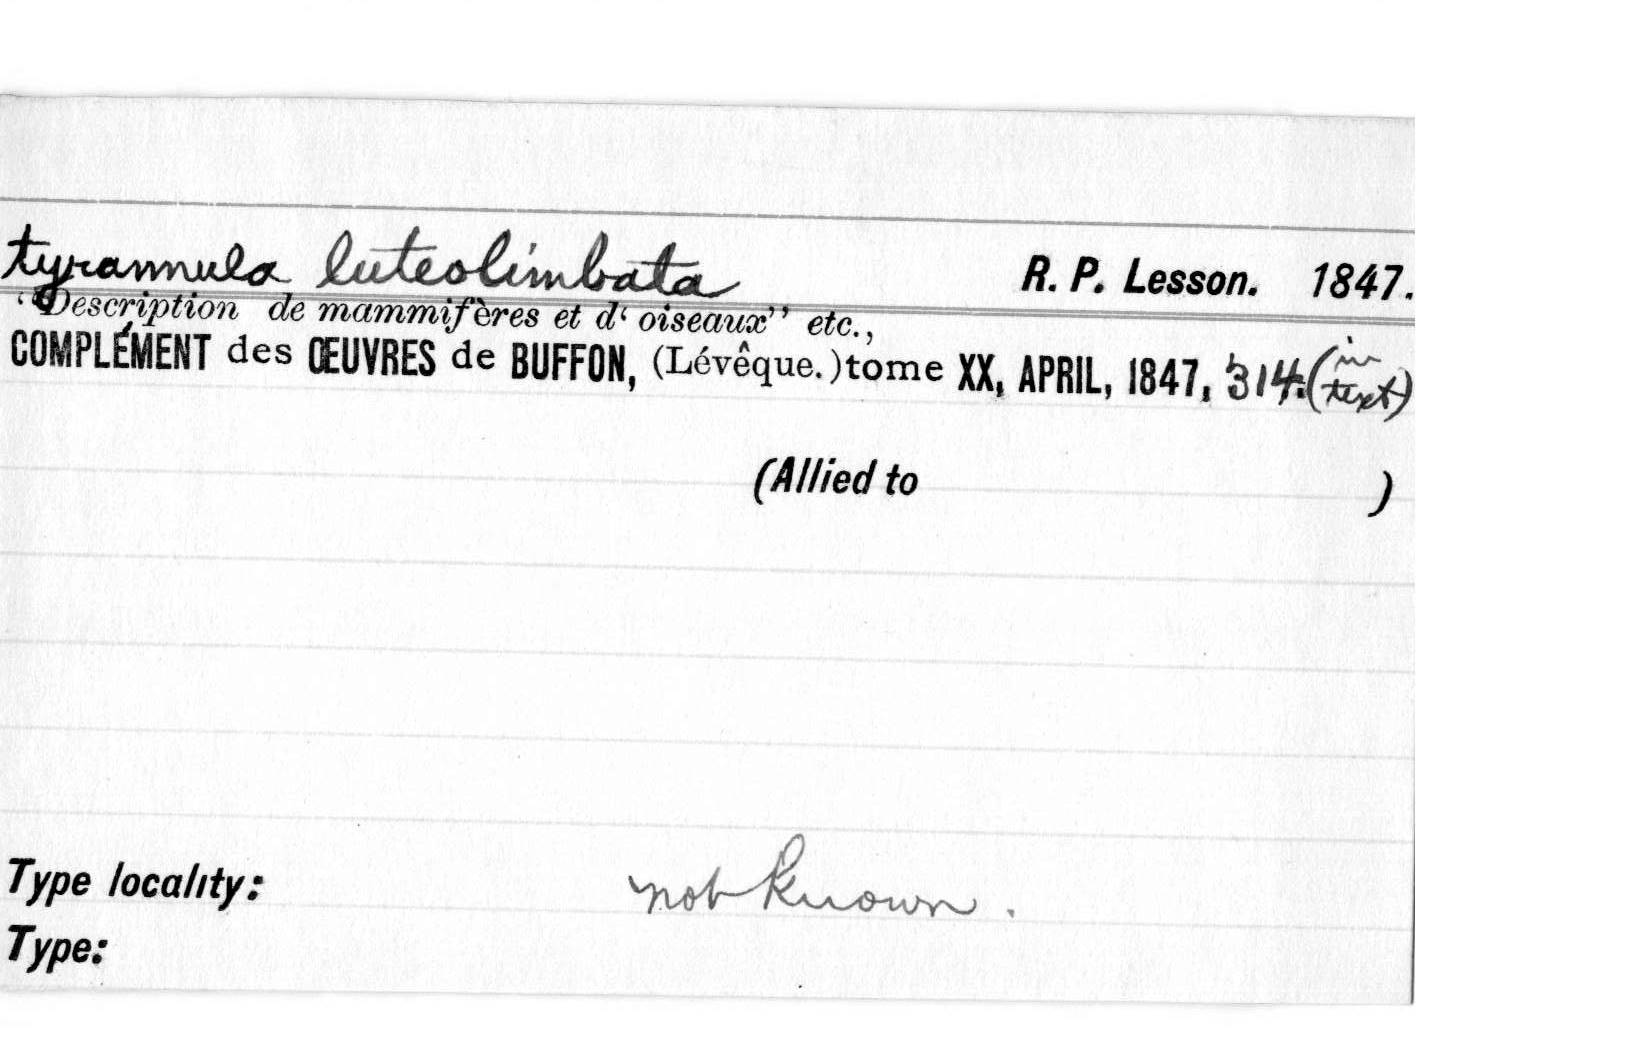 tyrannula luteolimbata R. P. Lesson. 1847.
“Description de mammifères et d‘ oiseaux” etc.,
COMPLÉMENT des ŒUVRES de BUFFON, (Lévêque.) tome XX, APRIL, 1847, 314. (in text)
(Allied to )
Type locality: not known.
Type: